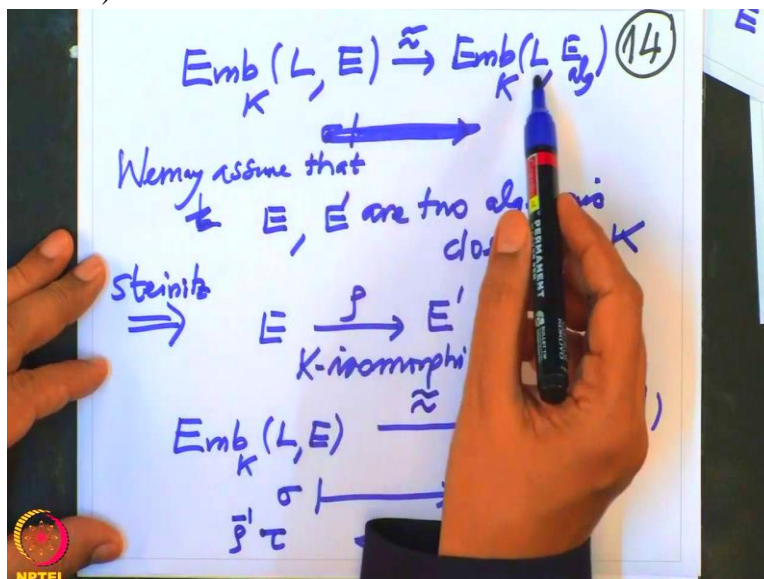 Emb_K (L, E) ≅→ Emb_K (L, E_alg) 14
We may assume that
E, E' are two
clos K
Steinitz
⇒ E —ρ→ E'
K-isomorphi
Emb_K (L, E) ≈ )
σ
ρ^{-1} τ
PERMANENT
NPTEL
E